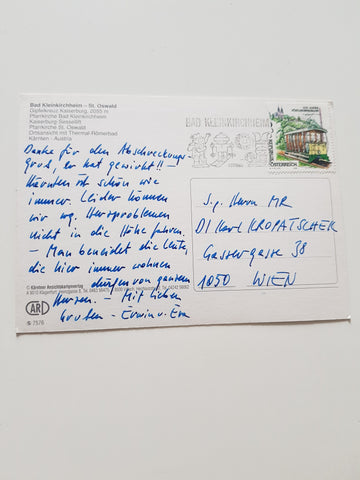 Bad Kleinkirchheim – St. Oswald
Gipfelkreuz Kaiserburg, 2055 m
Pfarrkirche Bad Kleinkirchheim
Kaiserburg Sessellift
Pfarrkirche St. Oswald
Ortsansicht mit Thermal-Römerbad
Kärnten - Austria
Danke für den Abschreckungs-
gruß, er hat gewirkt!! –
Kärnten ist schön, wie
immer. Leider können
wir wg. Herzproblemen
nicht in die Höhe fahren.
– Man beneidet die Leute,
die hier immer wohnen
dürfen von ganzem
Herzen. – Mit lieben
Grüßen – Erwin u. Eva
© Kärntner Ansichtskartenverlag
ARD
S 7576
BAD KLEINKIRCHHEIM
ÖSTERREICH
S.g. Herrn MR
DI Karl KROPATSCHEK
Gassergasse 38
1050 WIEN